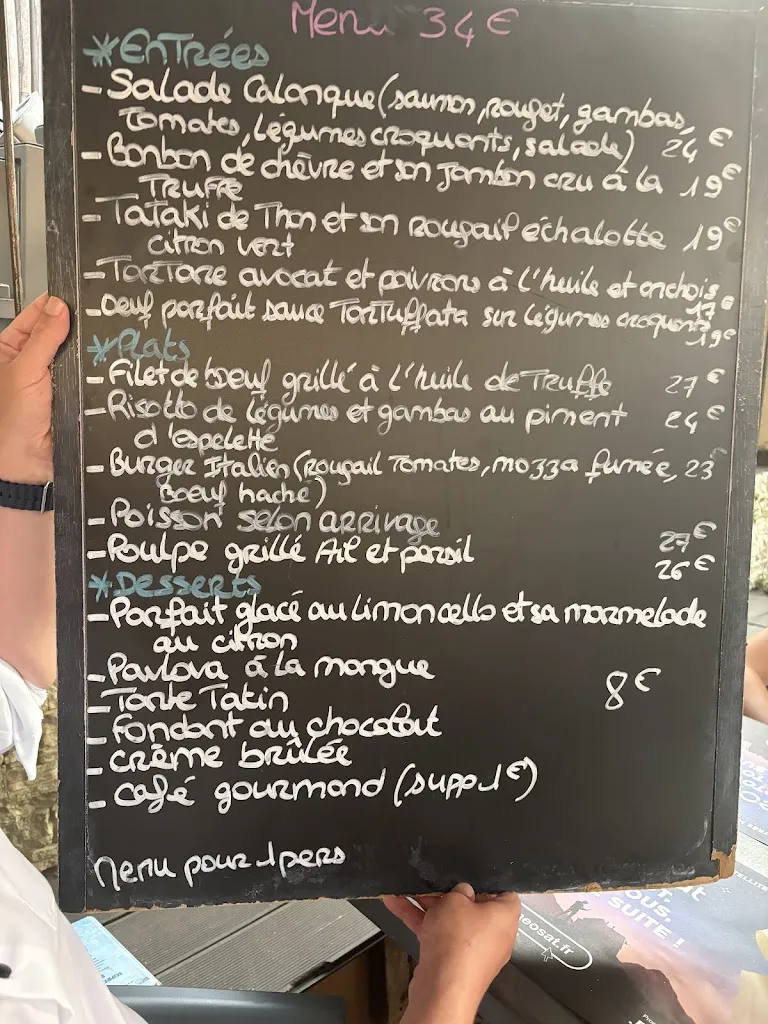 Menu 34€
*Entrées
- Salade Calanque (saumon, rouget, gambas,
Tomates, légumes croquants, salade) 24€
- Bonbon de chèvre et son Jambon cru à la
Truffe 19€
- Tataki de Thon et son rougail échalotte
citron vert 19€
- Tartare avocat et poivrons à l'huile et anchois
17€
- Oeuf parfait sauce Tartuffata sur légumes croquants
19€
*Plats
- Filet de boeuf grillé à l'huile de Truffe 27€
- Risotto de légumes et gambas au piment
d'espelette 24€
- Burger Italien (rougail Tomates, mozza fumée, 23€
Boeuf haché)
- Poisson selon arrivage 27€
- Poulpe grillé Ail et persil 26€
*Desserts
- Parfait glacé au limoncello et sa marmelade
au citron
- Pavlova à la mangue
- Tarte Tatin 8€
- Fondant au chocolat
- crème brûlée
- café gourmand (supp 1€)
Menu pour 1 pers
OUS.
SUITE !
eosat.fr